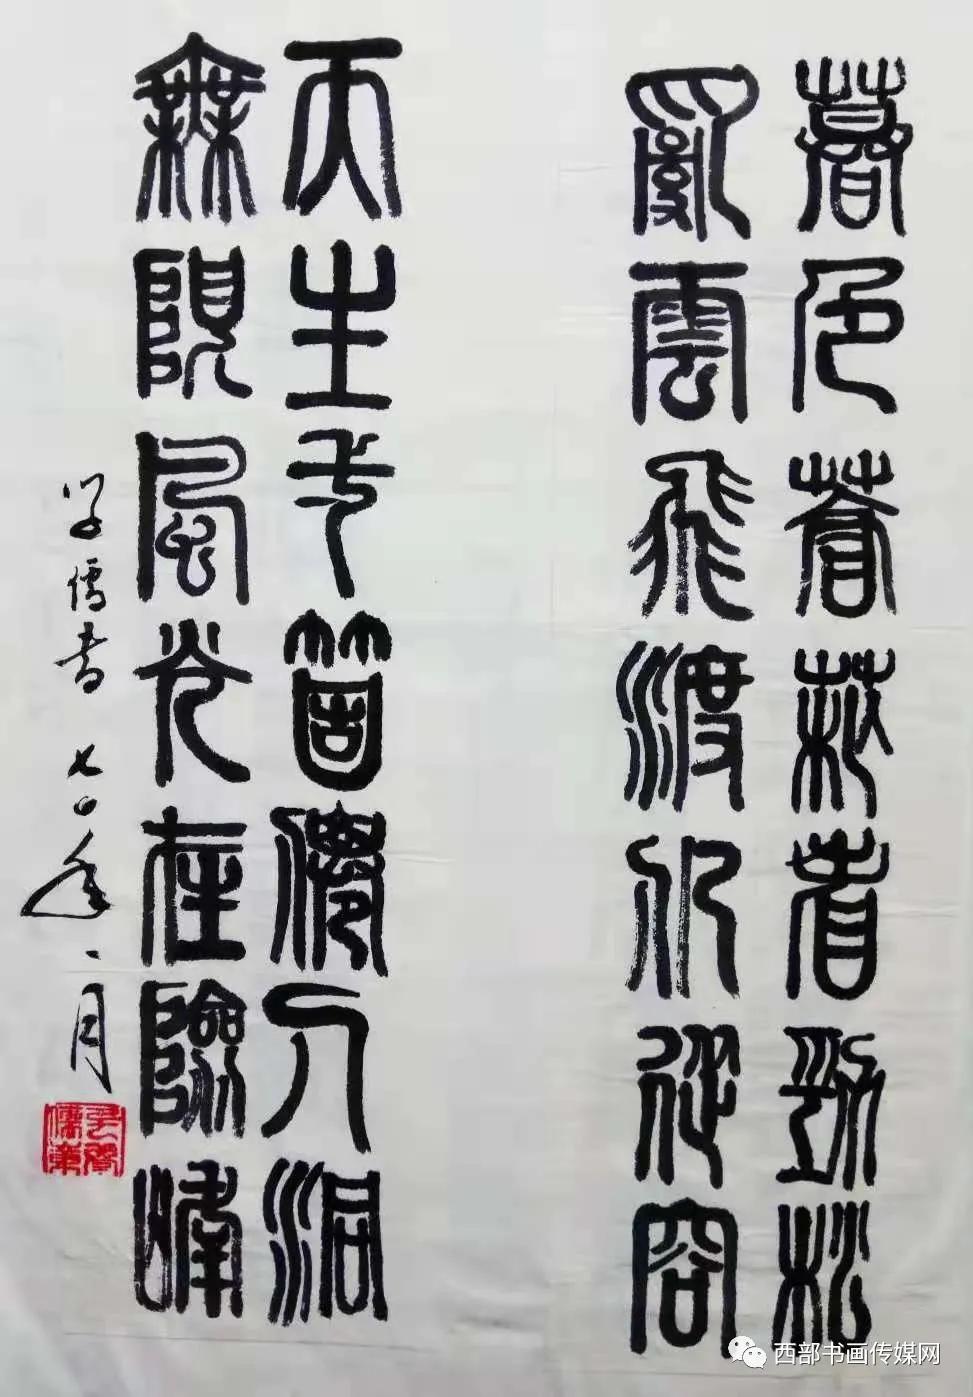 暮色蒼茫看勁松
亂雲飛渡仍從容
天生一箇僊人洞
無限風光在險峰
儒书
月
西部书画传媒网